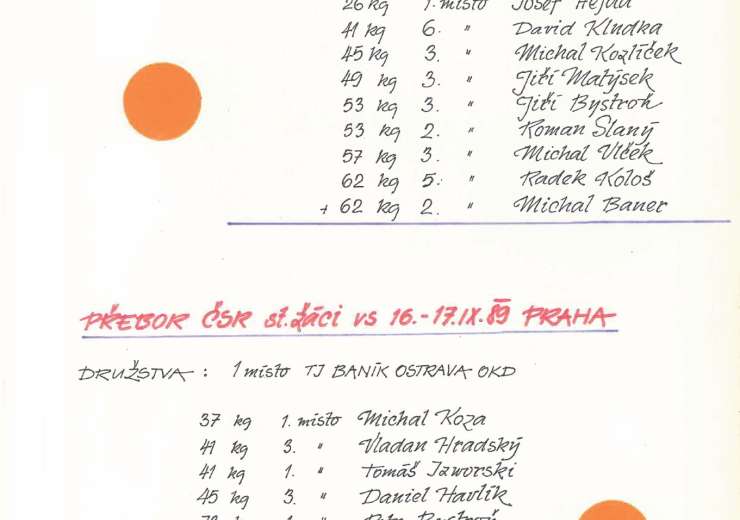 26 kg 1. místo Josef Hejda
41 kg 6. " David Kludka
45 kg 3. " Michal Kozlíček
49 kg 3. " Jiří Matýsek
53 kg 3. " Jiří Bystroň
53 kg 2. " Roman Slaný
57 kg 3. " Michal Vlček
62 kg 5. " Radek Kološ
+ 62 kg 2. " Michal Baner
PŘEBOR ČSR st. žáci vs 16.-17.IX.89 PRAHA
DRUŽSTVA : 1 místo TJ BANÍK OSTRAVA OKD
37 kg 1. místo Michal Koza
41 kg 3. " Vladan Hradský
41 kg 1. " Tomáš Jaworski
45 kg 3. " Daniel Havlík
kg 1. "